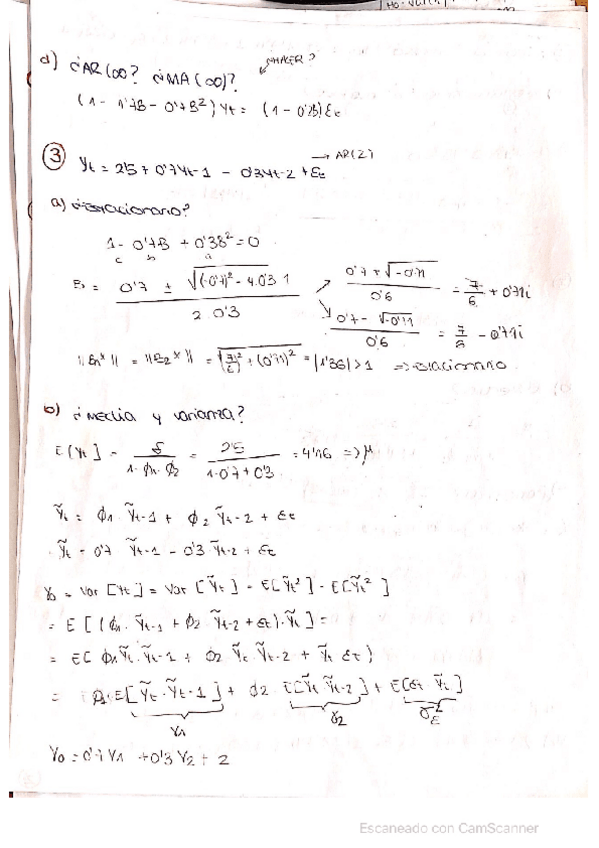 d) ¿AR(∞? ¿MA(∞)?
(1 - 1'7B - 0'7B²) Yt = (1 - 0'2B) Ɛt
③ Yt = 2'5 + 0'7Yt-1 - 0'3Yt-2 + Ɛt → AR(2)
a) ¿Estacionario?
1 - 0'7B + 0'3B² = 0
c b a
B = 0'7 ± √(-0'7)² - 4·0'3·1 / 2·0'3
0'7 + √-0'71 / 0'6 = 7/6 + 0'71i
0'7 - √-0'71 / 0'6 = 7/6 - 0'71i
||B1*|| = ||B2*|| = √(7/6)² + (0'71)² = |1'36| > 1 => estacionario
b) ¿Media y varianza?
E[Yt] = δ / 1-ϕ1-ϕ2 = 2'5 / 1-0'7+0'3 = 4'16 => μ
Ỹt = ϕ1·Ỹt-1 + ϕ2·Ỹt-2 + Ɛt
Ỹt = 0'7 Ỹt-1 - 0'3 Ỹt-2 + Ɛt
γ0 = Var[Yt] = Var[Ỹt] = E[Ỹt²] - E[Ỹt²]
= E[(ϕ1·Ỹt-1 + ϕ2·Ỹt-2 + Ɛt)·Ỹt] =
= E[ϕ1·Ỹt·Ỹt-1 + ϕ2·Ỹt·Ỹt-2 + Ỹt Ɛt]
= ϕ1·E[Ỹt·Ỹt-1] + ϕ2·E[Ỹt·Ỹt-2] + E[Ɛt·Ỹt]
γ1 γ2 σ²Ɛ
γ0 = 0'7γ1 + 0'3γ2 + 2
Escaneado con CamScanner